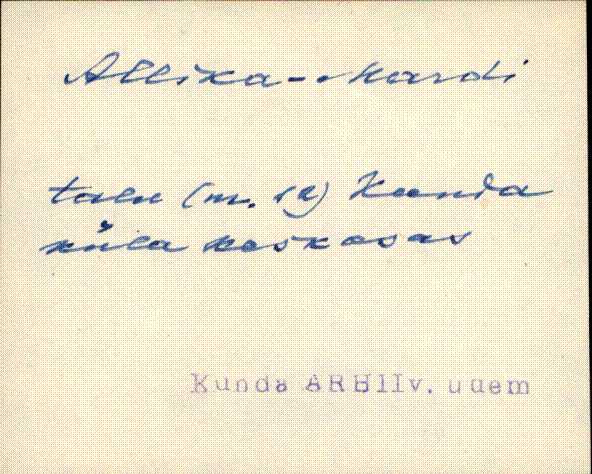 Allika-Mardi
talu (m. sg) Kunda
küla keskosas
Kunda ARHIIV. uuem